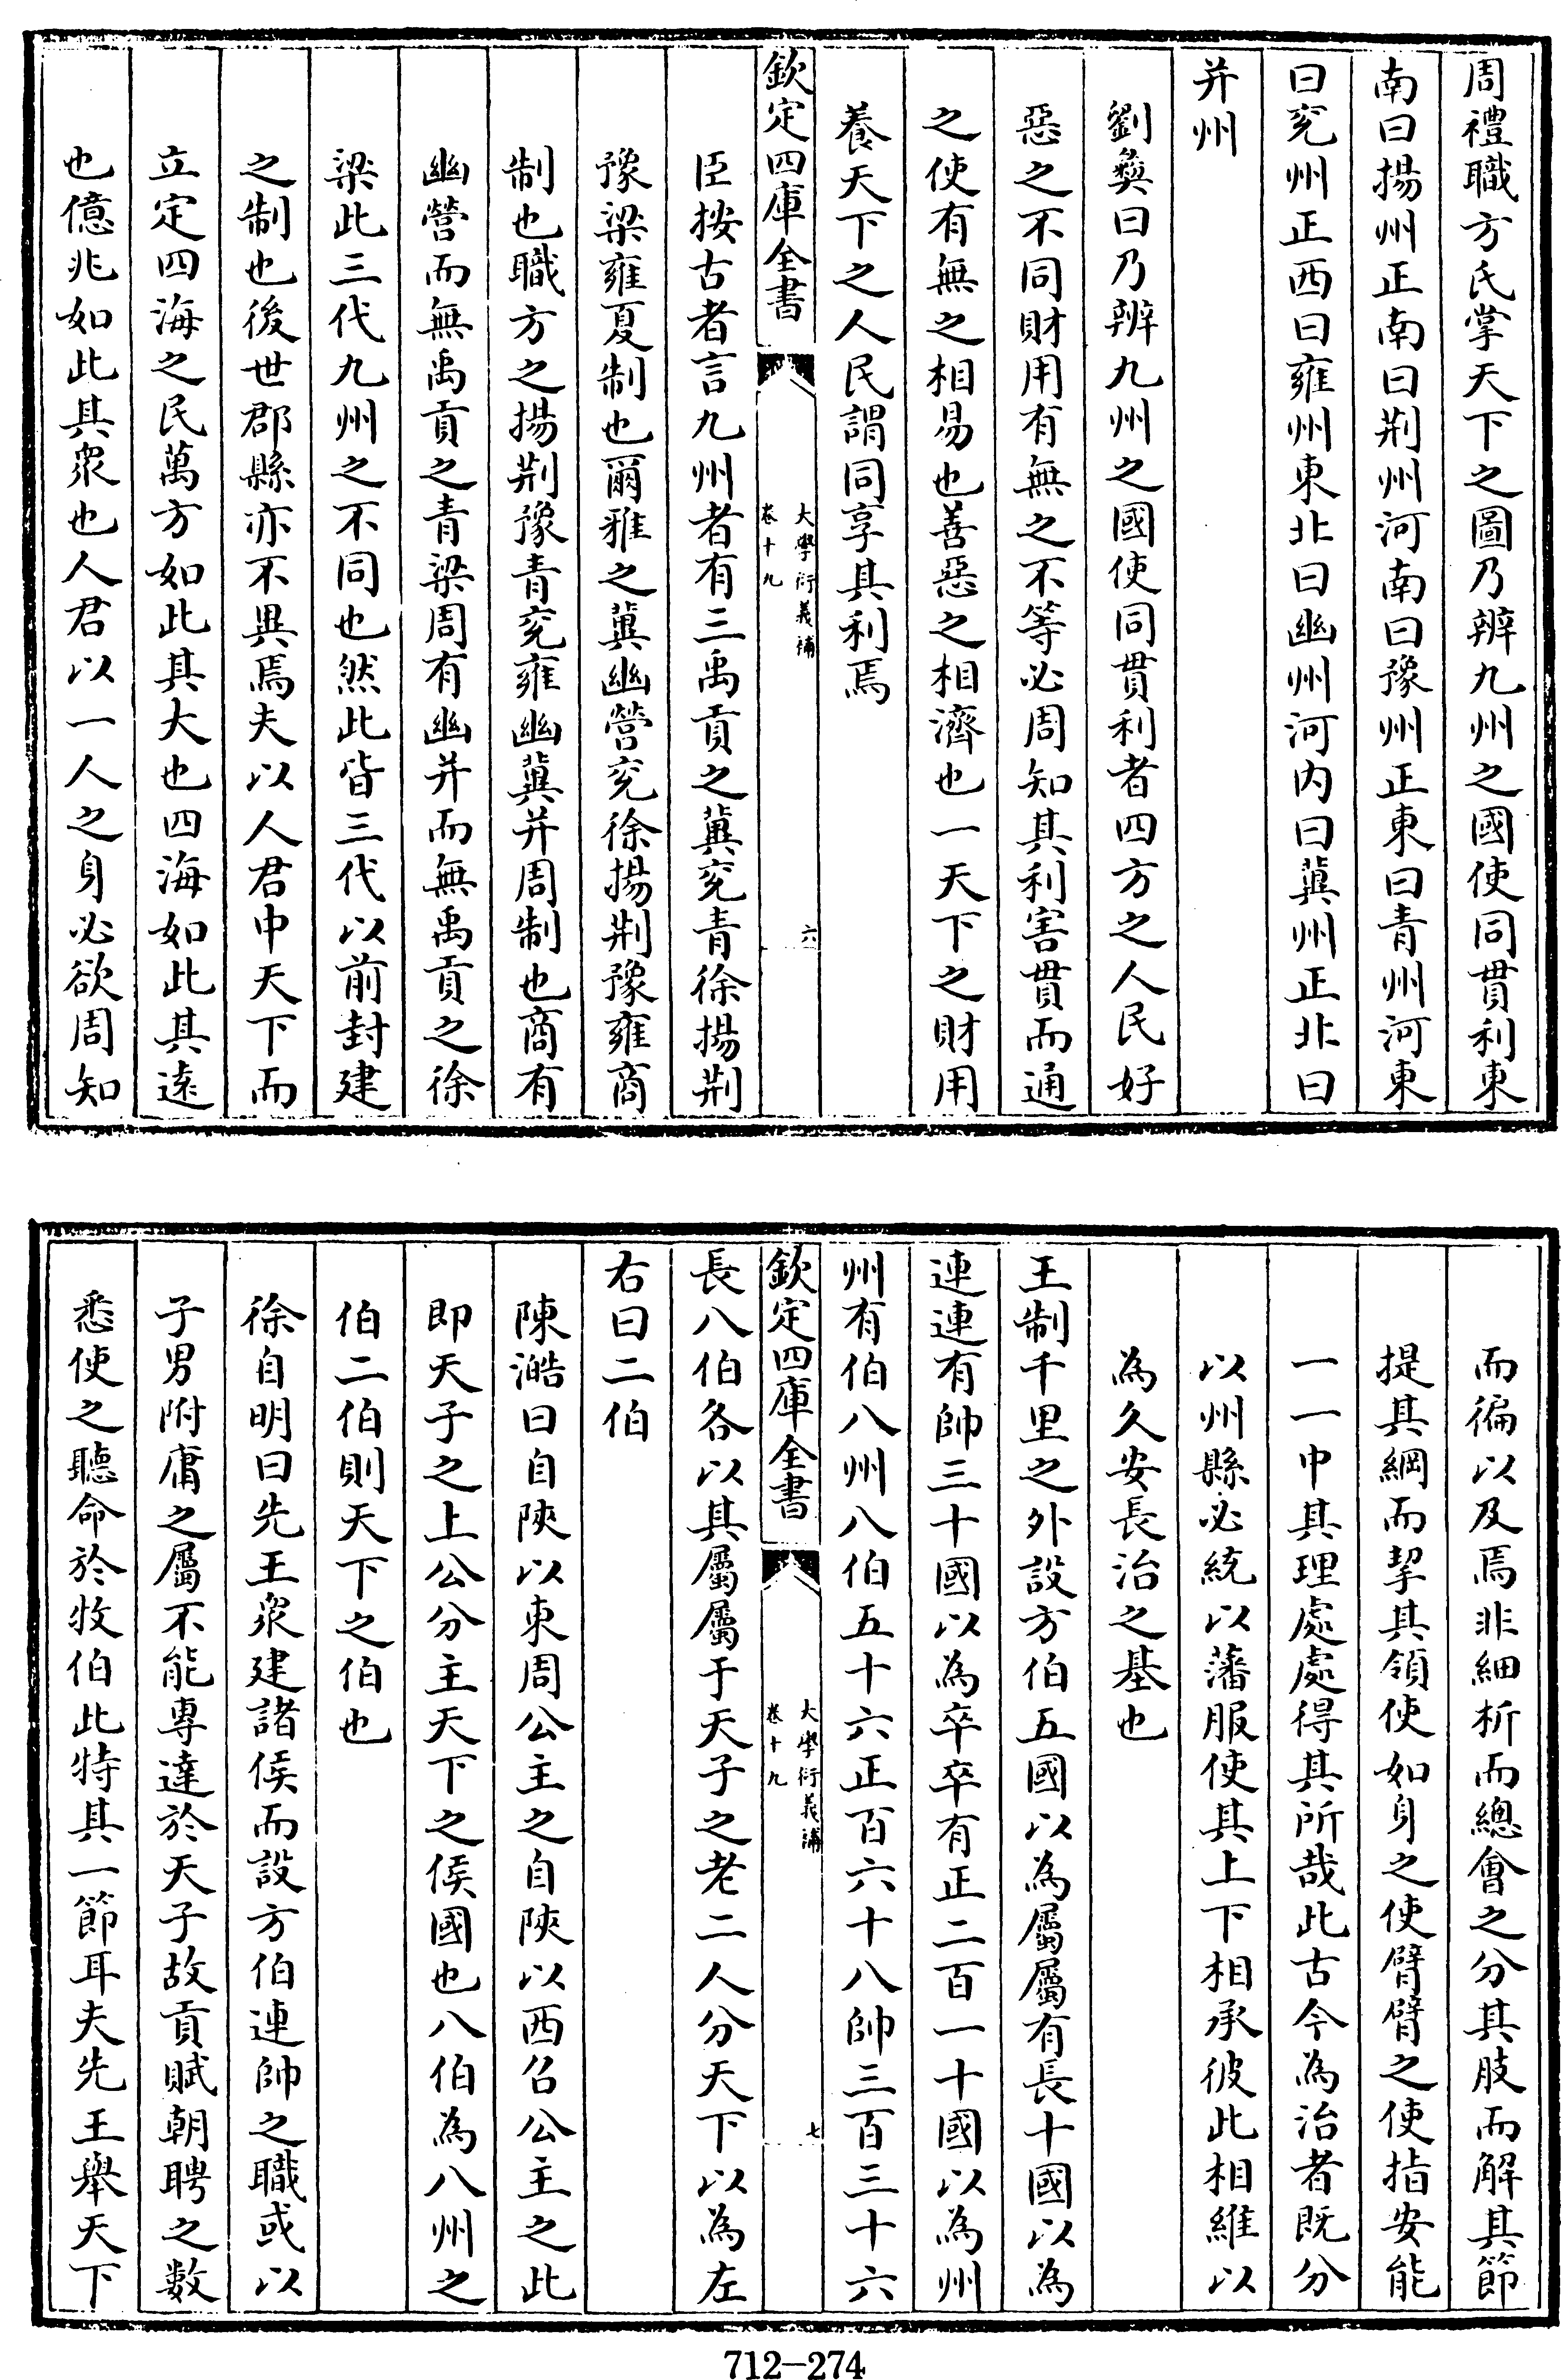 周禮職方氏掌天下之圖乃辨九州之國使同貫利東
南曰揚州正南曰荆州河南曰豫州正東曰青州河東
曰兖州正西曰雍州東北曰幽州河内曰冀州正北曰
并州
劉彝曰乃辨九州之國使同貫利者四方之人民好
惡之不同財用有無之不等必周知其利害貫而通
之使有無之相易也善惡之相濟也一天下之財用
養天下之人民謂同享其利焉
欽定四庫全書
大學衍義補
卷十九
六
臣按古者言九州者有三禹貢之冀兖青徐揚荆
豫梁雍夏制也爾雅之冀幽營兖徐揚荆豫雍商
制也職方之揚荆豫青兖雍幽冀并周制也商有
幽營而無禹貢之青梁周有幽并而無禹貢之徐
梁此三代九州之不同也然此皆三代以前封建
之制也後世郡縣亦不異焉夫以人君中天下而
立定四海之民萬方如此其大也四海如此其遠
也億兆如此其衆也人君以一人之身必欲周知
而徧以及焉非細析而總會之分其肢而解其節
提其綱而挈其領使如身之使臂臂之使指安能
一一中其理處處得其所哉此古今為治者既分
以州縣必統以藩服使其上下相承彼此相維以
為久安長治之基也
王制千里之外設方伯五國以為屬屬有長十國以為
連連有帥三十國以為卒卒有正二百一十國以為州
州有伯八州八伯五十六正百六十八帥三百三十六
欽定四庫全書
大學衍義補
卷十九
七
長八伯各以其屬屬于天子之老二人分天下以為左
右曰二伯
陳澔曰自陜以東周公主之自陜以西召公主之此
即天子之上公分主天下之侯國也八伯為八州之
伯二伯則天下之伯也
徐自明曰先王衆建諸侯而設方伯連帥之職或以
子男附庸之屬不能專達於天子故貢賦朝聘之數
悉使之聽命於牧伯此特其一節耳夫先王舉天下
712-274